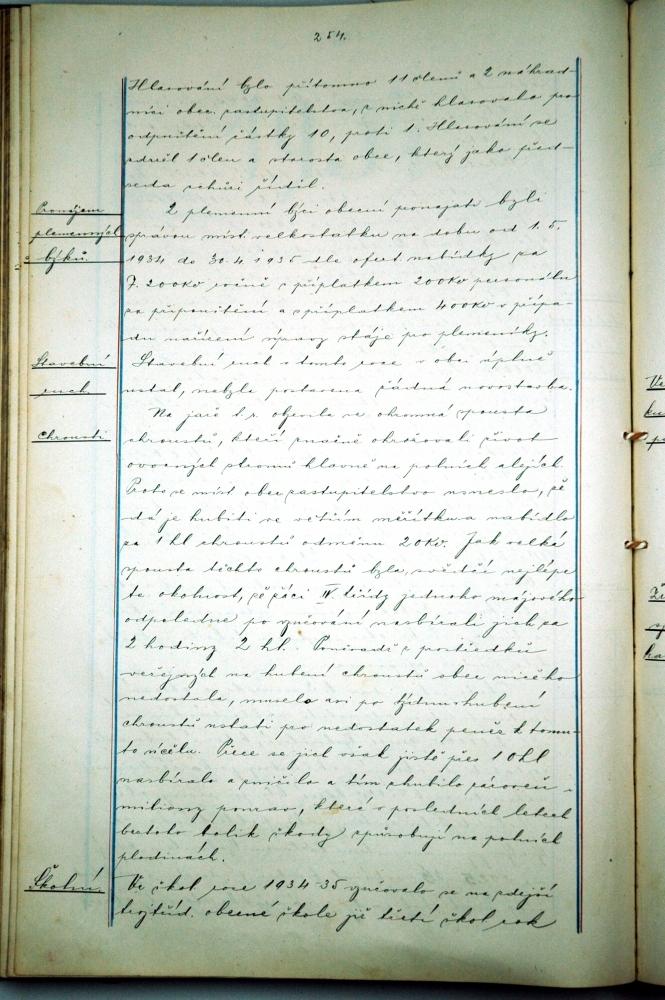 254.
Hlasování bylo přítomno 11 členů a 2 náhrad-
níci obec. zastupitelstva, z nichž hlasovalo pro
odpuštění částky 10, proti 1. Hlasování se
zdržel 1 člen a starosta obce, který jako před-
seda schůzi řídil.
Pronájem
plemenných
býků.
2 plemenní býci obecní ponajati byli
správou míst. velkostatku na dobu od 1. 5.
1934 do 30. 4. 1935 dle ofert nabídky za
7.200 Kč ročně s příplatkem 200 Kč personálu
za připouštění a s příplatkem 400 Kč v přípa-
du nařízení úpravy stáje po plemeníky.
Stavební
ruch
Stavební ruch v tomto roce v obci úplně
ustal, nebyla postavena žádná novostavba.
Chrousti
Na jaře t. r. objevila se ohromná spousta
chroustů, kteří značně ohrožovali život
ovocných stromů hlavně na polních alejích.
Proto se míst. obec. zastupitelstvo usneslo, že
dá je hubiti ve větším měřítku a nabídlo
za 1 hl chroustů odměnu 20 Kč. Jak velká
spousta těchto chroustů byla, svědčí nejlépe
ta okolnost, že žáci IV. třídy jednoho májového
odpoledne po vyučování nasbírali jich za
2 hodiny 2 hl. Poněvadž z prostředků
veřejných na hubení chroustů obec ničeho
nedostala, muselo asi po týdnu hubení
chroustů ustati pro nedostatek peněz k tomu-
to účelu. Přece se jich však jistě přes 10 hl
nasbíralo a zničilo a tím zhubilo zároveň
miliony ponrav, které v posledních letech
beztoto tolik škody způsobují na polních
plodinách.
Školní.
Ve škol. roce 1934-35 vyučovalo se na zdejší
trojtříd. obecné škole již třetí škol. rok